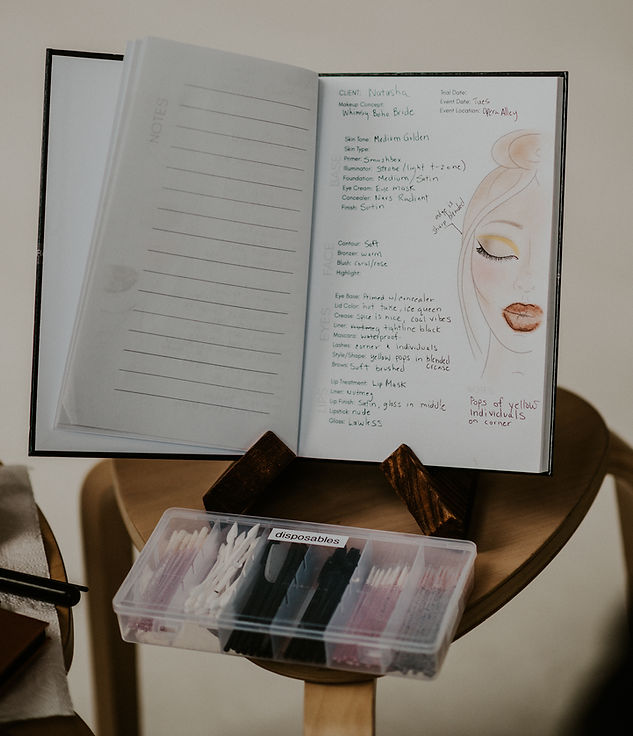 NOTES
CLIENT: Natasha
Makeup Concept:
Whimsy Boho Bride
Trial Date:
Event Date: Tues
Event Location: Opera Alley
BASE
Skin Tone: Medium Golden
Skin Type:
Primer: Smashbox
Illuminator: Strobe (light t-zone)
Foundation: Medium/Satin
Eye Cream: Eye mask
Concealer: Nars Radiant
Finish: Satin
FACE
Contour: Soft
Bronzer: warm
Blush: coral/rose
Highlight:
EYES
Eye Base: Primed w/concealer
Lid Color: hot take, ice queen
Crease: spice is nice, cool vibes
Liner: nutmeg tightline black
Mascara: waterproof
Lashes: corner & individuals
Style/Shape: yellow pops in blended crease
Brows: Soft brushed
LIPS
Lip Treatment: Lip Mask
Liner: Nutmeg
Lip Finish: Satin, gloss in middle
Lipstick: nude
Gloss: Lawless
sharp blended
NOTES
Pops of yellow
Individuals
on corner
disposables